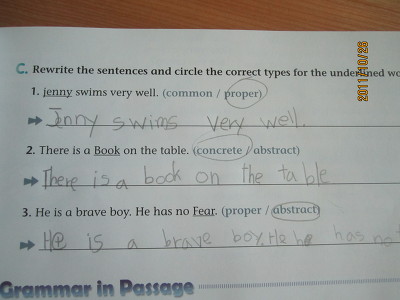 C. Rewrite the sentences and circle the correct types for the underlined wo
1. jenny swims very well. (common / proper)
Jenny swims very well.
2. There is a Book on the table. (concrete / abstract)
There is a book on the table
3. He is a brave boy. He has no Fear. (proper / abstract)
He is a brave boy. He he has no
Grammar in Passage
2011/10/26